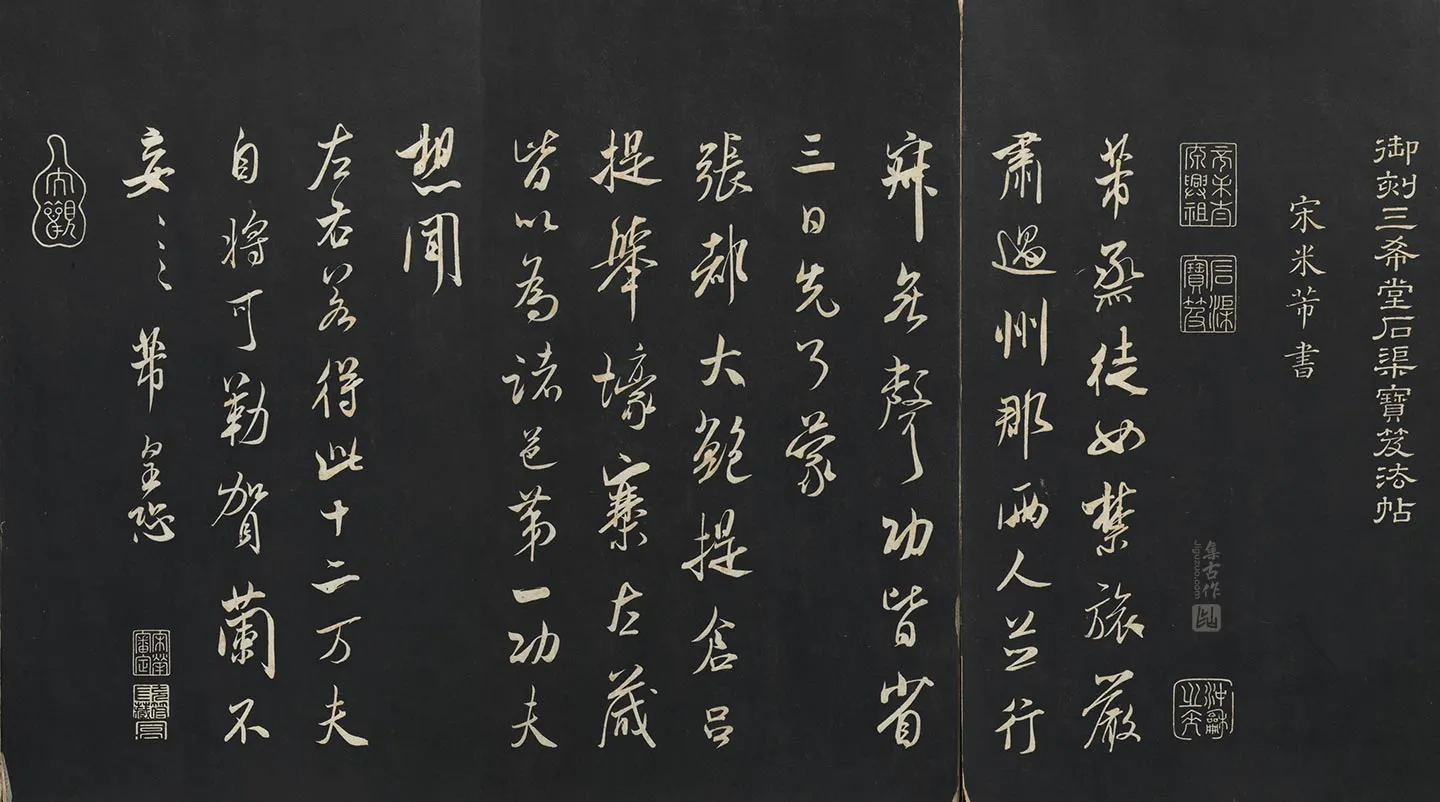 御刻三希堂石渠寶笈法帖
宋米芾書
石渠寶笈
集古作
jiguzuo.com
芾烝徒如禁旅嚴
肅過州郡兩人並行
寂無聲功皆省
三日先了蒙
張都大鮑提倉呂
提舉壕寨左藏
皆以為諸邑第一功夫
想聞
左右若得此十二万夫
自將可勒賀蘭不
妄〻〻芾皇恐
宋犖審定